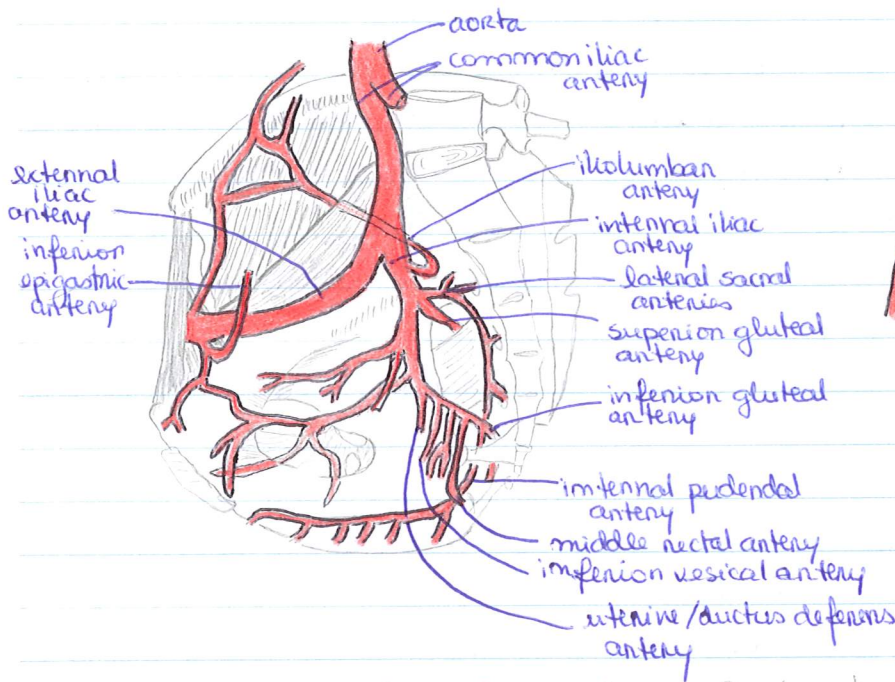 aorta
common iliac
artery
external
iliac
artery
inferior
epigastric
artery
iliolumbar
artery
internal iliac
artery
lateral sacral
arteries
superior gluteal
artery
inferior gluteal
artery
internal pudendal
artery
middle rectal artery
inferior vesical artery
uterine/ductus deferens
artery